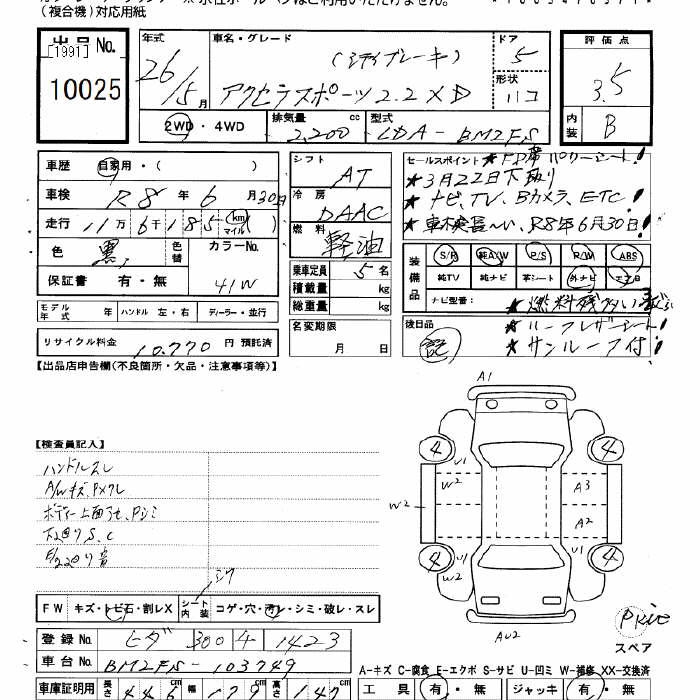 (複合機)対応用紙
出品No.
[1991]
10025
年式
26/5月
車名・グレード
(シティブレーキ)
アクセラスポーツ 2.2 XD
ドア
5
形状
ハコ
評価点
3.5
内装
B
2WD・4WD
排気量 cc
2,200
型式
LDA-BM2FS
車歴 自家用・( )
車検 R8年6月30日
走行 11万6千185 km マイル( )
色 黒
色替
カラーNo.
41W
保証書 有・無
モデル年式 年 ハンドル 左・右 ディーラー・並行
リサイクル料金 10,770 円 預託済
シフト AT
冷房 DAAC
燃料 軽油
乗車定員 5名
積載量 kg
総重量 kg
名変期限
月 日
セールスポイント
★3月22日下取り
★ナビ、TV、Bカメラ、ETC!
R8年6月30日!
装備品
S/R 純A/W P/S P/W ABS
純TV 純ナビ 革シート 外ナビ エアB
ナビ型番:
後日品
記
★サンルーフ付!
【出品店申告欄(不良箇所・欠品・注意事項等)】
【検査員記入】
ハンドルスレ
A/Wキズ、
下回りS、C
シワ
FW キズ・トビ石・割レX
シート内装 コゲ・穴・汚レ・シミ・破レ・スレ
登録No. ヒダ 300 チ 1423
車台No. BM2FS-103749
車庫証明用 長さ 446cm 幅 179cm 高さ 147cm
A1
4
4
U1
W2
W2
A3
A2
4
4
U1
U1
W2
AU2
スペア
A-キズ C-腐食 E-エクボ S-サビ U-凹ミ W-補修 XX-交換済
工具 有・無 ジャッキ 有・無